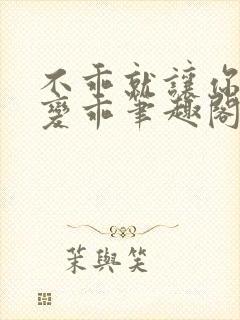 不乖就讓你
變乖筆趣閣
茉與笑